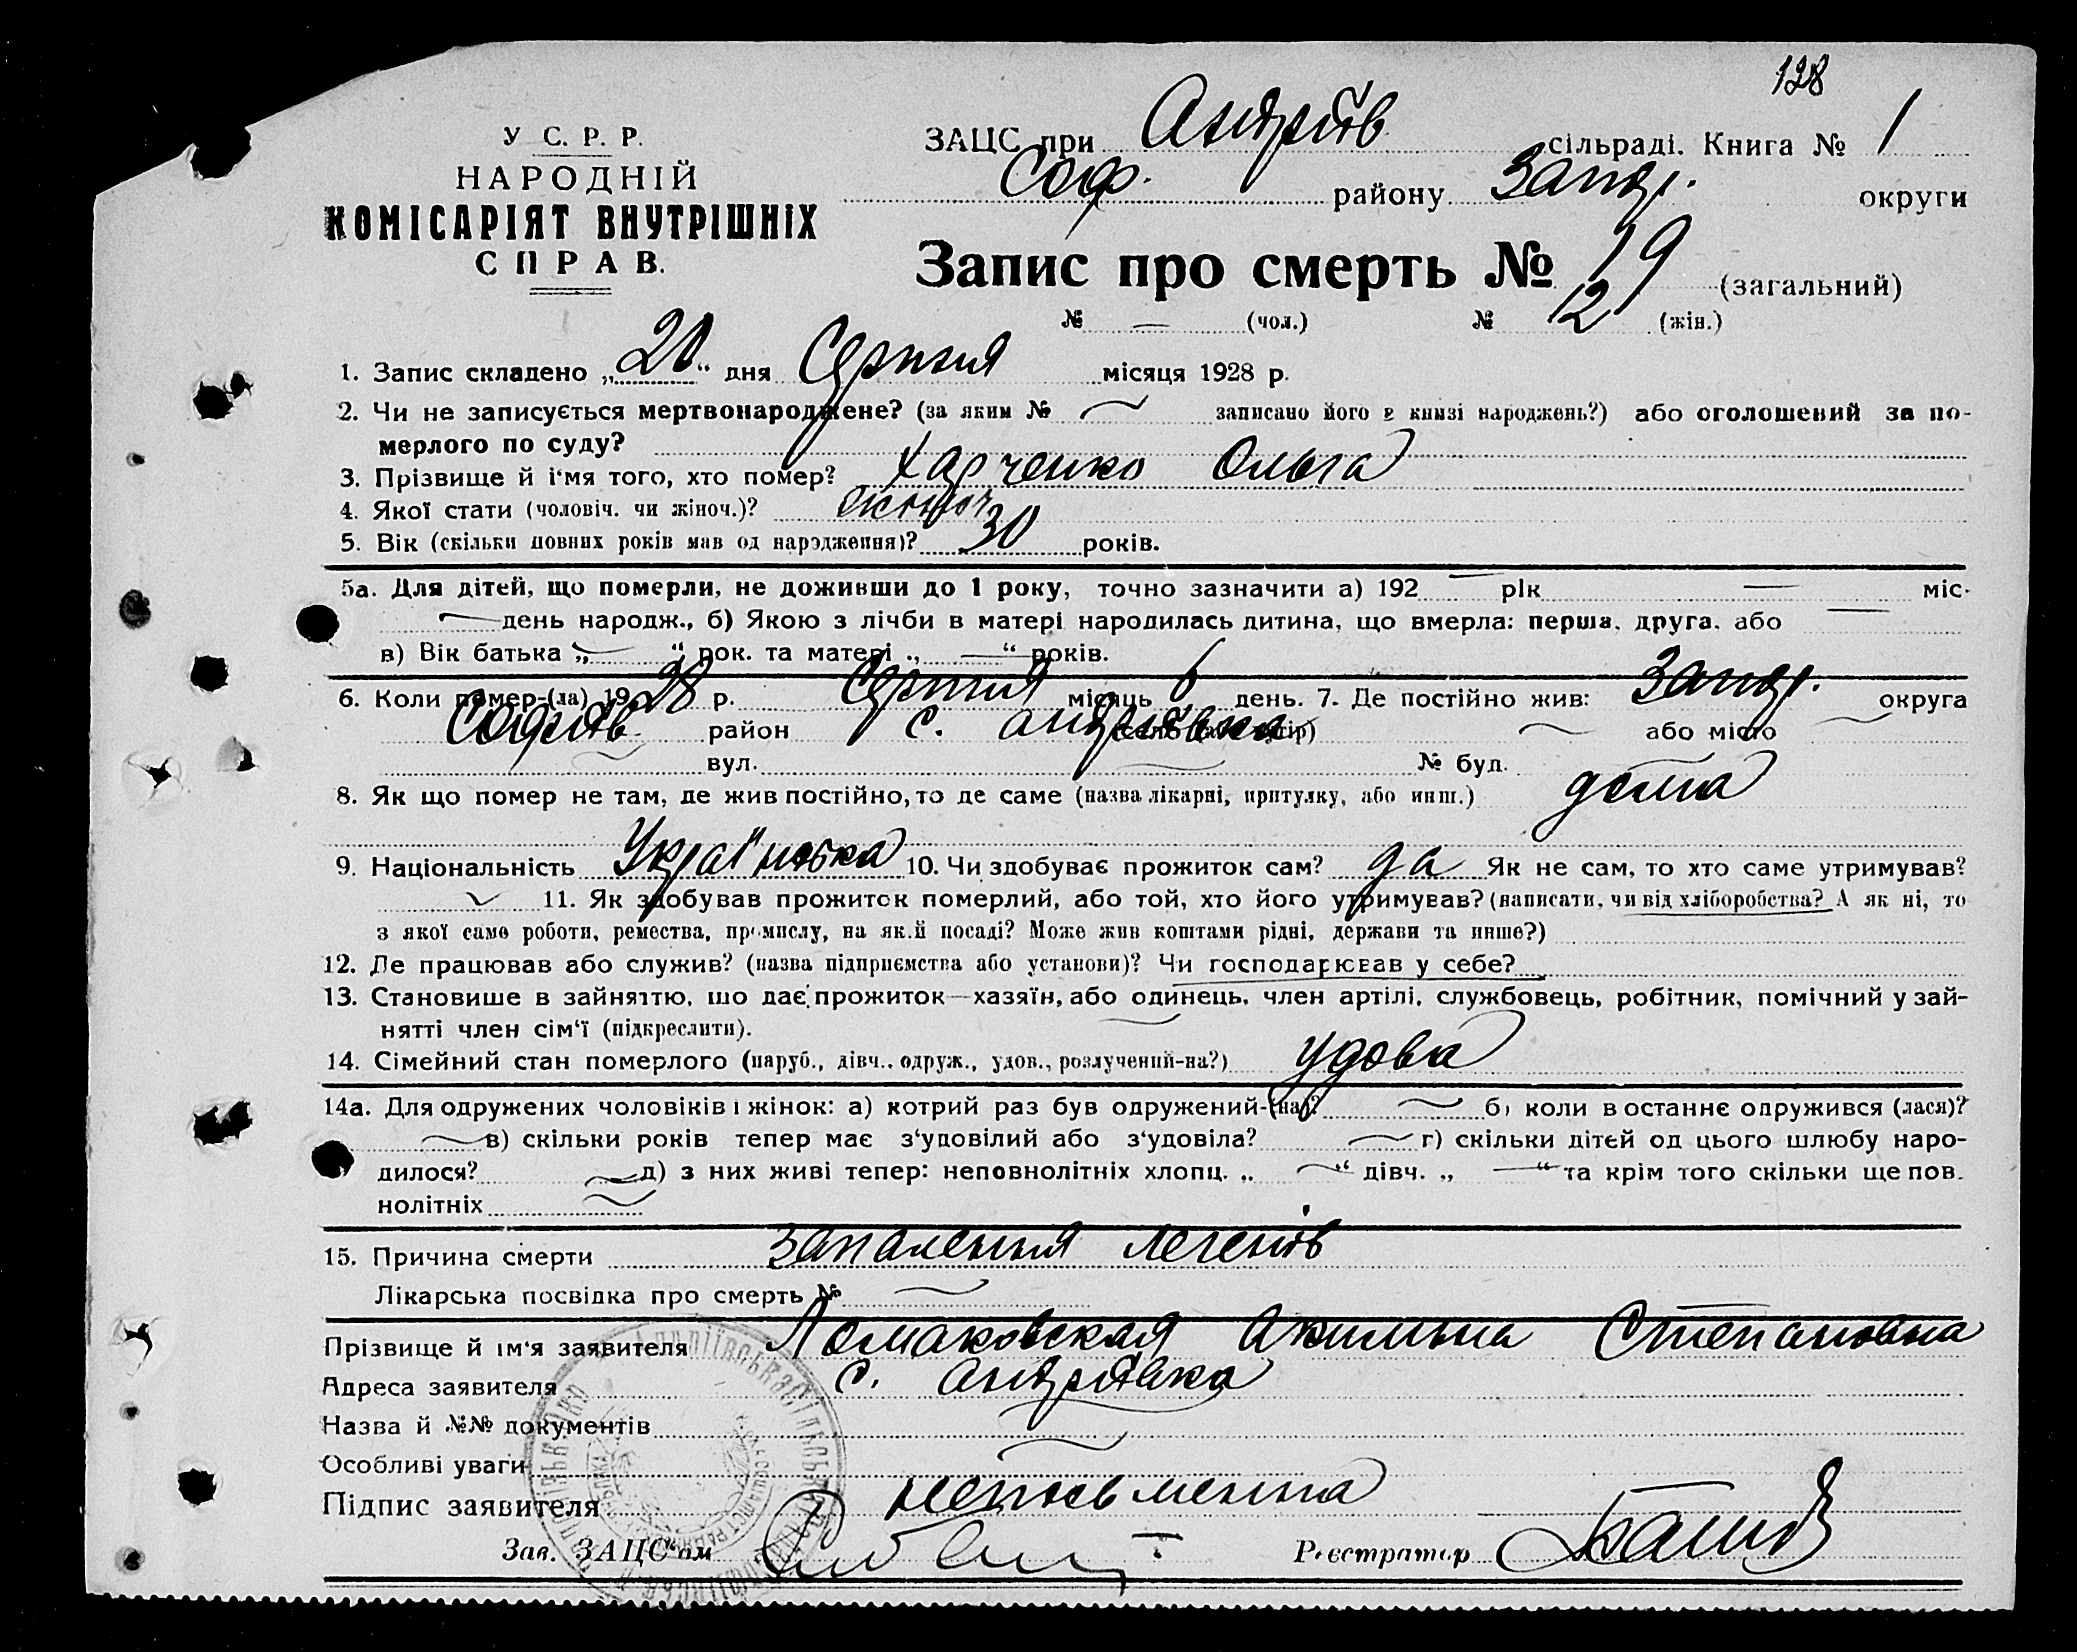 128
У С. Р. Р.
НАРОДНІЙ
КОМІСАРІЯТ ВНУТРІШНІХ
СПРАВ.
ЗАЦС при Андріїв сільраді. Книга № 1
Соф. району Запор. округи
Запис про смерть № 19 (загальний)
№ — (чол.) № 12 (жін.)
1. Запис складено „20“ дня Серпня місяця 1928 р.
2. Чи не записується мертвонароджене? (за яким № — записано його в книзі народжень?) або оголошений за по-
мерлого по суду?
3. Прізвище й і'мя того, хто помер? Харченко Ольга
4. Якої стати (чоловіч. чи жіноч.)? жіноч
5. Вік (скільки повних років мав од народження)? 30 років.
5а. Для дітей, що померли, не доживши до 1 року, точно зазначити а) 192 — рік — міс.
— день народж., б) Якою з лічби в матері народилась дитина, що вмерла: перша, друга, або —
в) Вік батька „—“ рок. та матері „—“ років.
6. Коли помер-(ла) 1928 р. Серпня місяць 6 день. 7. Де постійно жив: Запор. округа
Софіїв район с. Андріївка (село, хутір) — або місто —
— вул. — № буд.
8. Як що помер не там, де жив постійно, то де саме (назва лікарні, притулку, або инш.) дома
9. Національність Українська 10. Чи здобуває прожиток сам? да Як не сам, то хто саме утримував?
— 11. Як здобував прожиток померлий, або той, хто його утримував? (написати, чи від хліборобства? А як ні, то
з якої саме роботи, ремества, промислу, на якій посаді? Може жив коштами рідні, держави та инше?)
12. Де працював або служив? (назва підприємства або установи)? Чи господарював у себе?
13. Становище в зайняттю, що дає прожиток—хазяїн, або одинець, член артілі, службовець, робітник, помічний у зай-
нятті член сім'ї (підкреслити). —
14. Сімейний стан померлого (паруб., дівч., одруж., удов., розлучений-на?) удова
14а. Для одружених чоловіків і жінок: а) котрий раз був одружений-(на)? — б) коли востаннє одружився (лася)?
— в) скільки років тепер має з'удовілий або з'удовіла? — г) скільки дітей од цього шлюбу наро-
дилося? — д) з них живі тепер: неповнолітніх хлопц. „—“ дівч. „—“ та крім того скільки ще пов.
нолітніх —
15. Причина смерти запалення легенів
Лікарська посвідка про смерть № —
Прізвище й ім'я заявителя Ломаковская Акилина Степановна
Адреса заявителя с. Андріївка
Назва й №№ документів —
Особливі уваги —
Підпис заявителя неписьменна
Зав. ЗАЦС'ом
Реєстратор